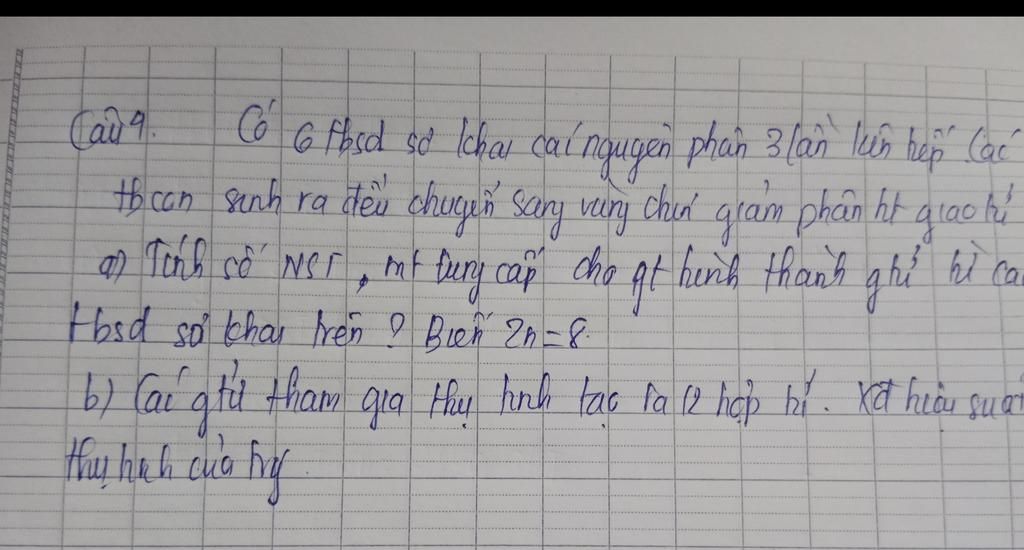 Câu 9. Có 6 tbsd sơ khai cái nguyên phân 3 lần liên tiếp Các
tb con sinh ra đều chuyển sang vùng chín giảm phân ht giao tử
a) Tính số NST, mt cung cấp cho qt hình thành ghi tử
tbsd sơ khai trên? Biết 2n=8.
b) Các gtử tham gia thụ tinh tạo ra 12 hợp tử. Xđ hiệu suất
thụ tinh của trg